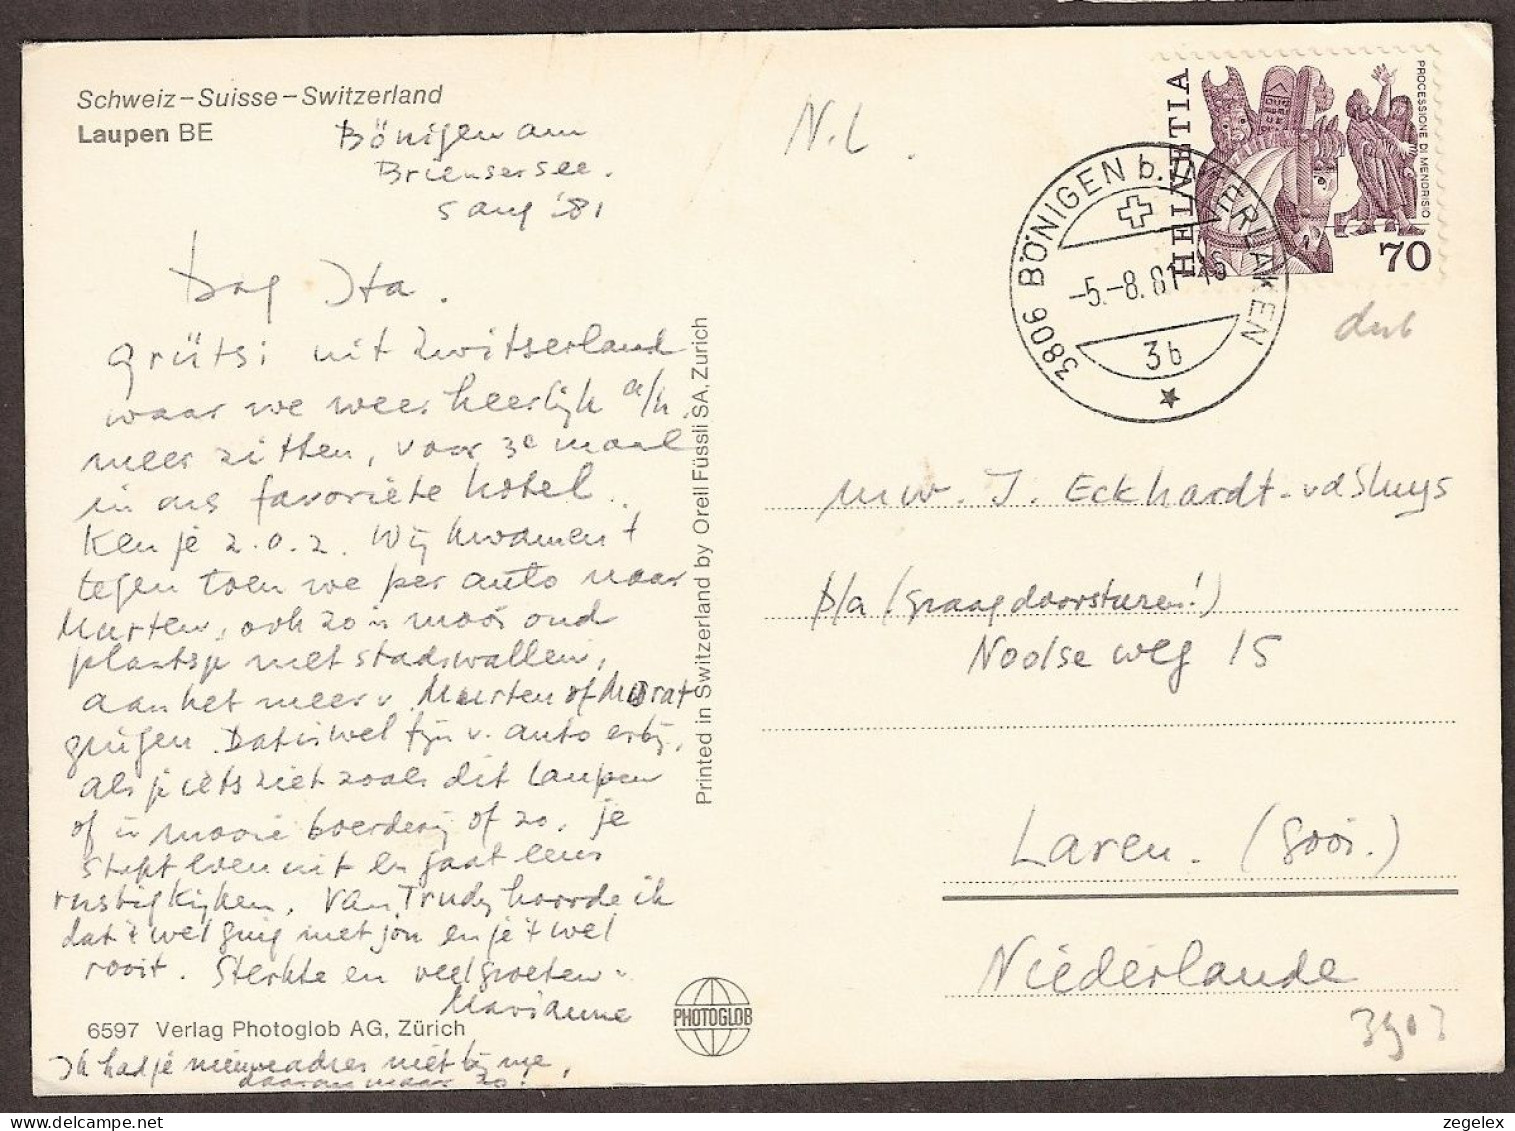 Schweiz – Suisse – Switzerland
Laupen BE
Bönigen am
Brienzersee.
5 aug '81
N.L.
HELVETIA
PROCESSIONE DI MENDRISIO
70
3806 BÖNIGEN b. INTERLAKEN
-5.-8.81-16
3b
Dag Ita.
grütsi uit Zwitserland
waar we weer heerlijk a/h
meer zitten, voor 3e maal
in ons favoriete hotel.
Ken je z.o.z. Wij kwamen 't
tegen toen we per auto naar
Murten, ook zo'n mooi oud
plaatsje met stadswallen,
aan het meer v. Murten of Morat
gingen. Dat is wel fijn v. auto erbij,
als je iets ziet zoals dit Laupen
of 'n mooie boerderij of zo. je
stapt even uit en gaat eens
rustig kijken. Van Trudy hoorde ik
dat 't wel ging met jou en je 't wel
rooit. Sterkte en veel groeten.
Marianne
6597 Verlag Photoglob AG, Zürich
Ik had je nieuwe adres niet bij me,
daarom maar zo.
Printed in Switzerland by Orell Füssli SA, Zurich
PHOTOGLOB
mw. I. Eckhardt-vd Sluys
p/a (graag doorsturen!)
Noolse weg 15
Laren. (Gooi.)
Niederlande
zegelex.com